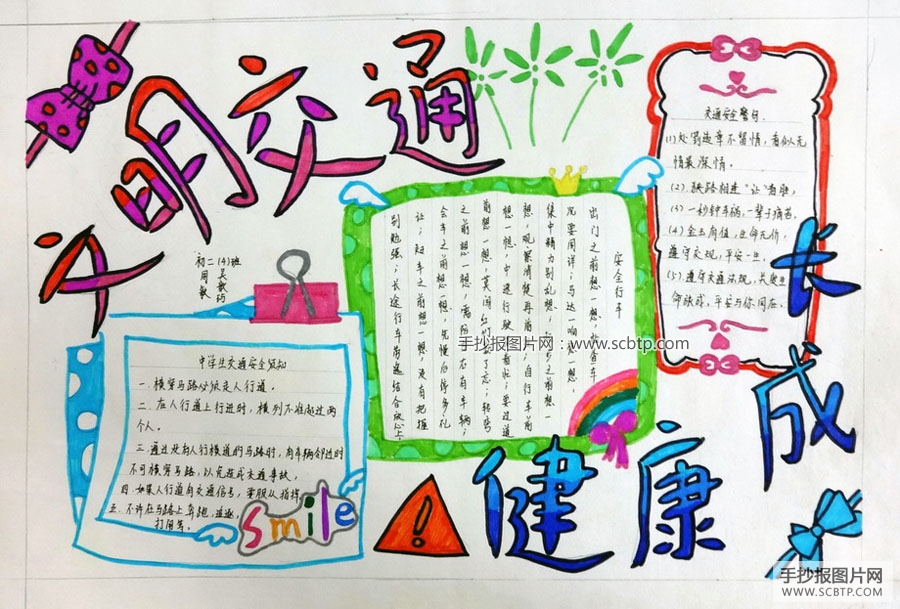 文明交通
初二(4)班
安全行车
出门之前想一想,检查车
况要周详;马达一响想一想,
集中精力别乱想;起步之前想一
想,观察清楚再前
想一想,中速行驶
前想一想,莫闯红灯
之前想一想,需防左右有车辆;
会车之前想一想,先慢后停多礼
让;超车之前想一想,没有把握
别勉强;长途行车
交通安全警句
(1)处罚违章不留情,看似无
情最深情。
(2)狭路相逢“让”者雄,
(3)一秒钟车祸,一辈子痛苦。
(4)金玉有值,生命无价,
遵守交规,平安一生.
(5)遵守交通法规,关爱生
命旅程,平安与你同在。
中学生交通安全须知
一.横穿马路必须走人行道。
二.在人行道上行进时,横列不准超过两
个人。
三.通过没有人行横道的马路时,有车辆临近时
不可横穿马路,以免造成交通事故。
四.如果人行道有交通信号,要服从指挥
五.不许在马路上奔跑、追逐、
打闹等。
smile
健康
成长
手抄报图片网:www.scbtp.com
手抄报图片网
WWW.SCBTP.COM